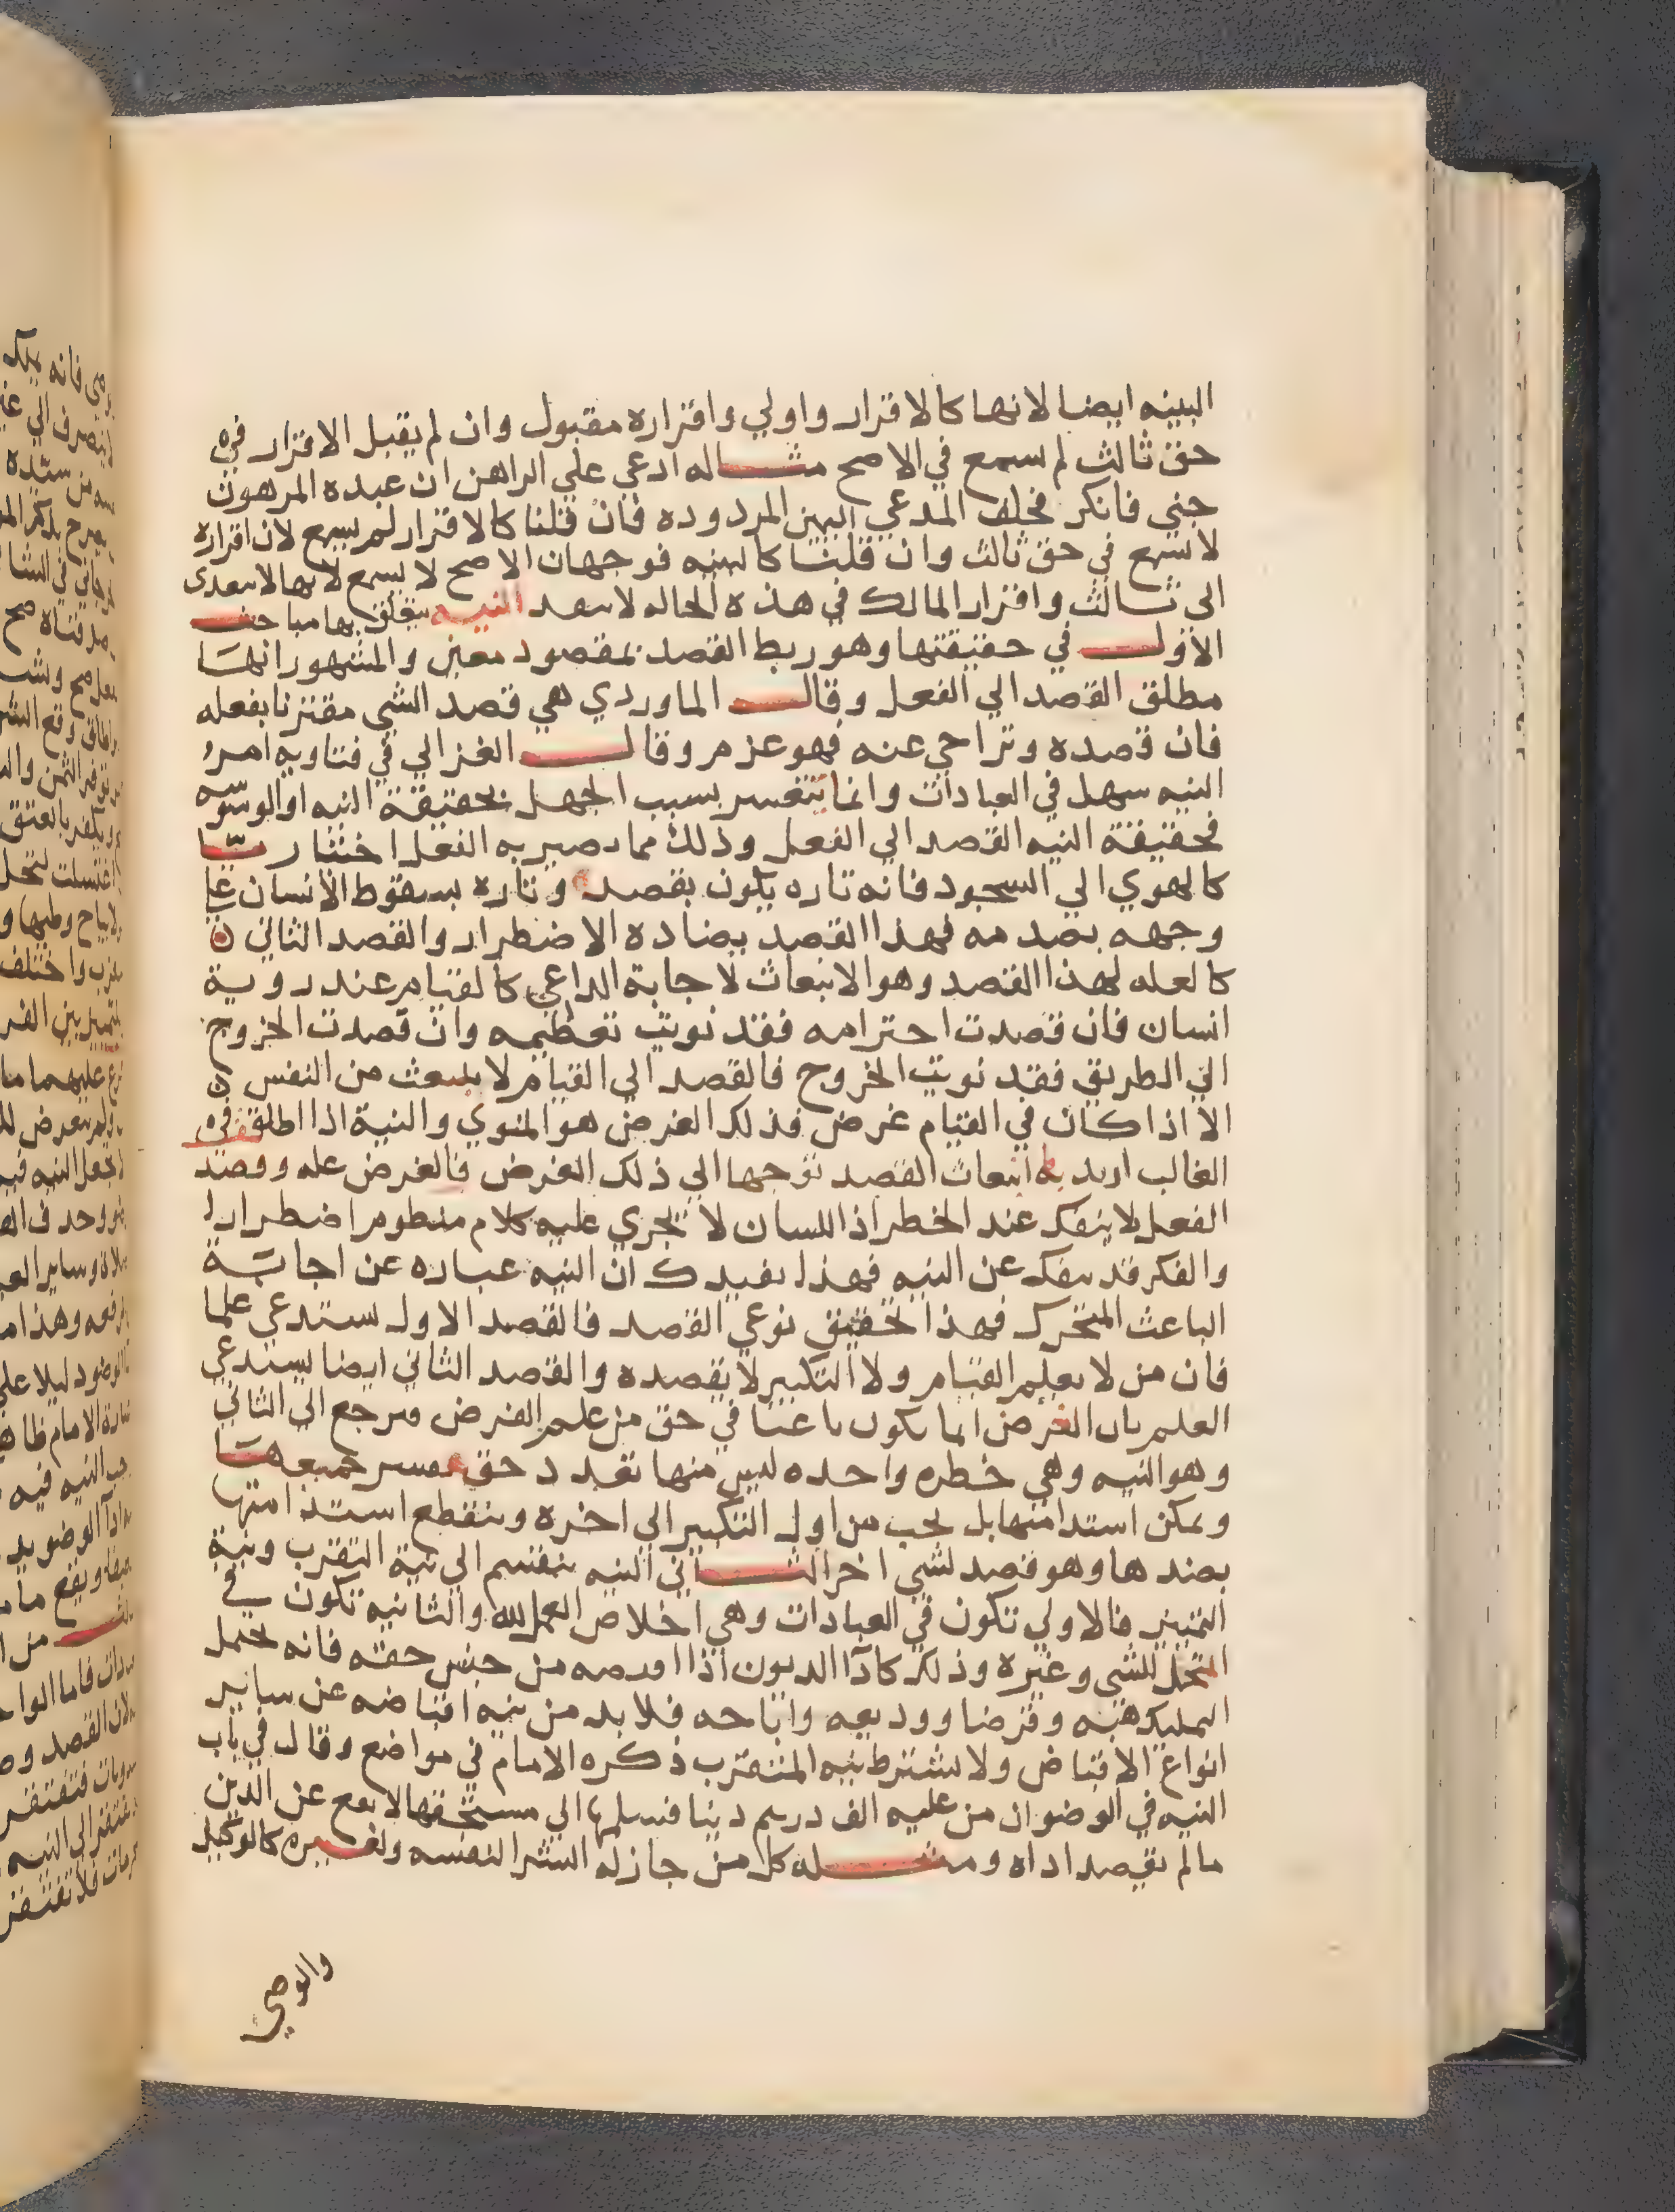 البينه ايضا لانها كالاقرار واولي واقراره مقبول وان لم يقبل الاقرار في
حق ثالث لم يسمع في الاصح مثاله ادعي علي الراهن ان عبده المرهون
جني فانكر فحلف المدعي اليمين المردوده فان قلنا كالاقرار لم يسمع لان اقراره
لا يسمع في حق ثالث وان قلنا كالبينه فوجهان الاصح لا يسمع لانها لا تتعدى
الى ثالث واقرار المالك في هذه الحاله لا ينفد النيه يتعلق بها مباحث
الاول في حقيقتها وهو ربط القصد بمقصود معين والمشهور انها
مطلق القصد الي الفعل وقال الماوردي هي قصد الشي مقترنا بفعله
فان قصده وتراخي عنه فهو عزم وقال الغزالي في فتاويه امر
النيه سهل في العبادات وانما يتعسر بسبب الجهل بحقيقة النيه او الوسوسه
فحقيقة النيه القصد الي الفعل وذلك مما يصير به الفعل اختياريا
كالهوي الي السجود فانه تاره يكون بقصد وتاره بسقوط الانسان علي
وجهه بصدمه فهذا القصد يضاده الاضطرار والقصد الثاني
كالعله لهذا القصد وهو الانبعاث لاجابة الداعي كالقيام عند روية
انسان فان قصدت احترامه فقد نويت تعظيمه وان قصدت الخروج
الي الطريق فقد نويت الخروج فالقصد الي القيام لا ينبعث من النفس
الا اذا كان في القيام غرض فذلك الغرض هو المنوي والنية اذا اطلقت في
الغالب اريد به انبعاث القصد توجها الي ذلك الغرض فالغرض عله وقصد
الفعل لا ينفك عند الخطر اذ اللسان لا يجري عليه كلام منظوم اضطرارا
والفكر قد ينفك عن النيه فهذا يفيدك ان النيه عباره عن اجابة
الباعث المتحرك فهذا تحقيق نوعي القصد فالقصد الاول يستدعي علما
فان من لا يعلم القيام ولا التكبير لا يقصده والقصد الثاني ايضا يستدعي
العلم بان الغرض انما يكون باعثا في حق من علم الغرض فيرجع الي الثاني
وهو النيه وهي خطره واحده ليس منها تعدد حتى يعسر جميعها
ويمكن استدامتها بل يجب من اول التكبير الي اخره وينقطع استدامتها
بضدها وهو قصد لشي اخر الثاني النيه ينقسم الي نية التقرب ونية
التمييز فالاولي تكون في العبادات وهي اخلاص العمل لله والثانيه تكون في
المحتمل للشي وغيره وذلك كادا الديون اذا اقبضه من جنس حقه فانه يحتمل
التمليك هبه وقرضا ووديعه واباحه فلا بد من نيه اقباضه عن ساير
انواع الاقباض ولا يشترط نيه المتقرب ذكره الامام في مواضع وقال في باب
النيه في الوضو ان من عليه الف درهم دينا فسلمها الي مستحقها لا يقع عن الدين
ما لم يقصد اداه ومثله كل من جاز له الشرا لنفسه ولغيره كالوكيل
والوصي